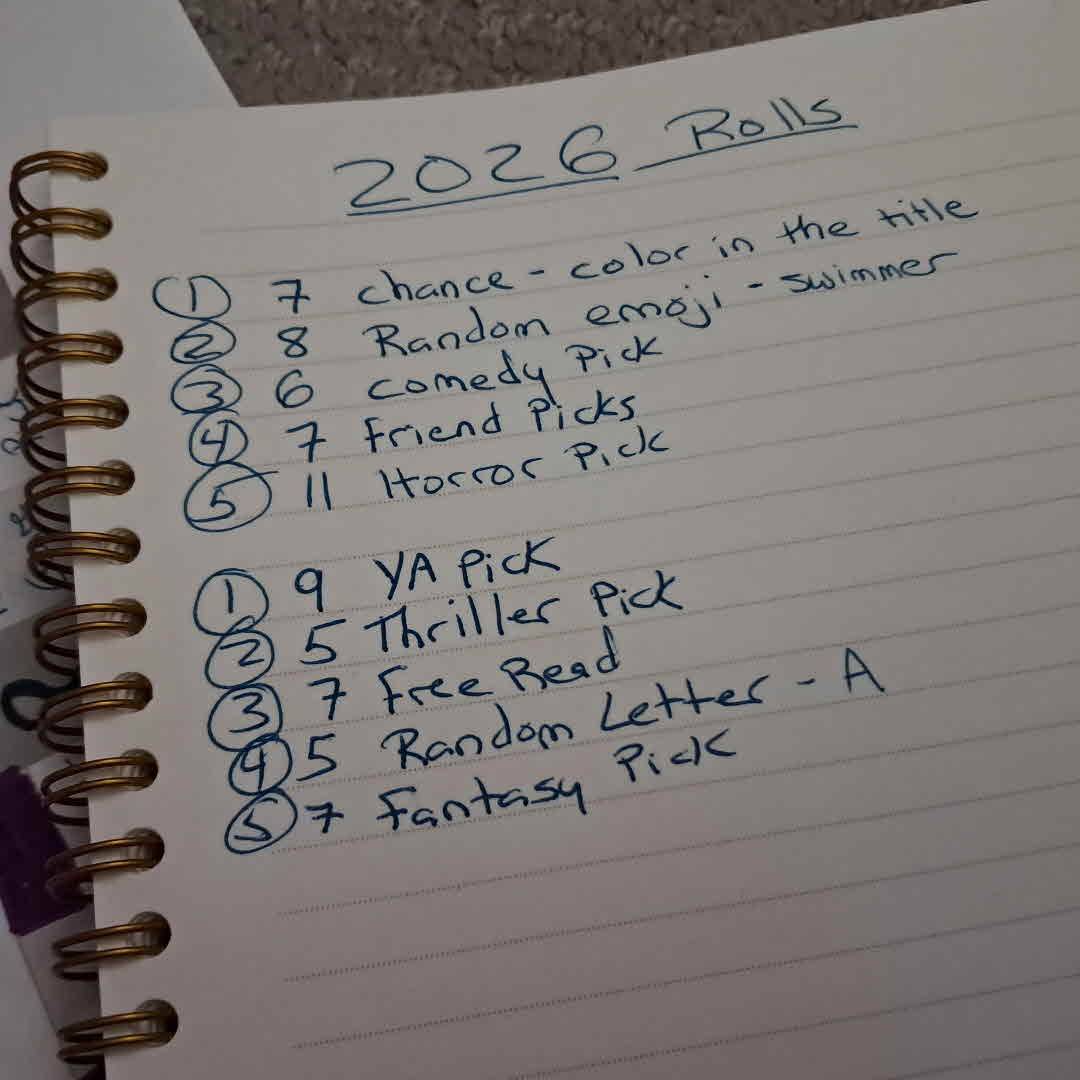 2026 Rolls
① 7 chance - color in the title
② 8 Random emoji - swimmer
③ 6 comedy Pick
④ 7 Friend Picks
⑤ 11 Horror Pick
① 9 YA Pick
② 5 Thriller Pick
③ 7 Free Read
④ 5 Random Letter - A
⑤ 7 Fantasy Pick